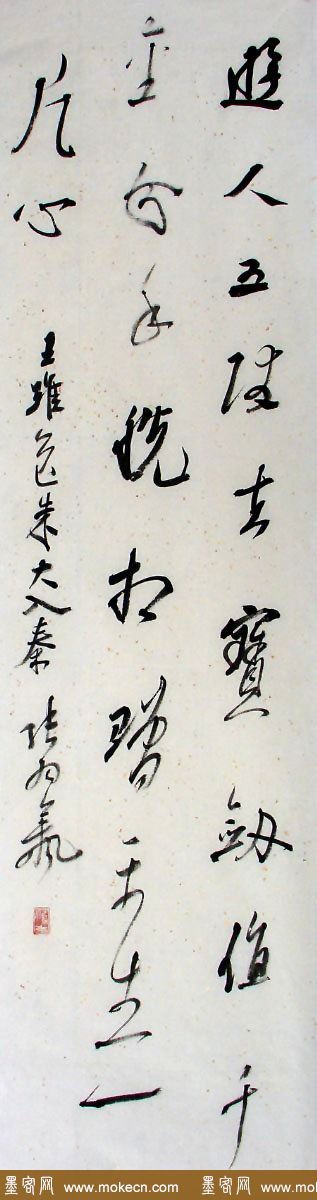 遊人五陵去寶劒值千
金分手脫相贈平生一
片心
王維送朱大入秦 张为義
墨客网 www.mokecn.com 墨客网 www.m